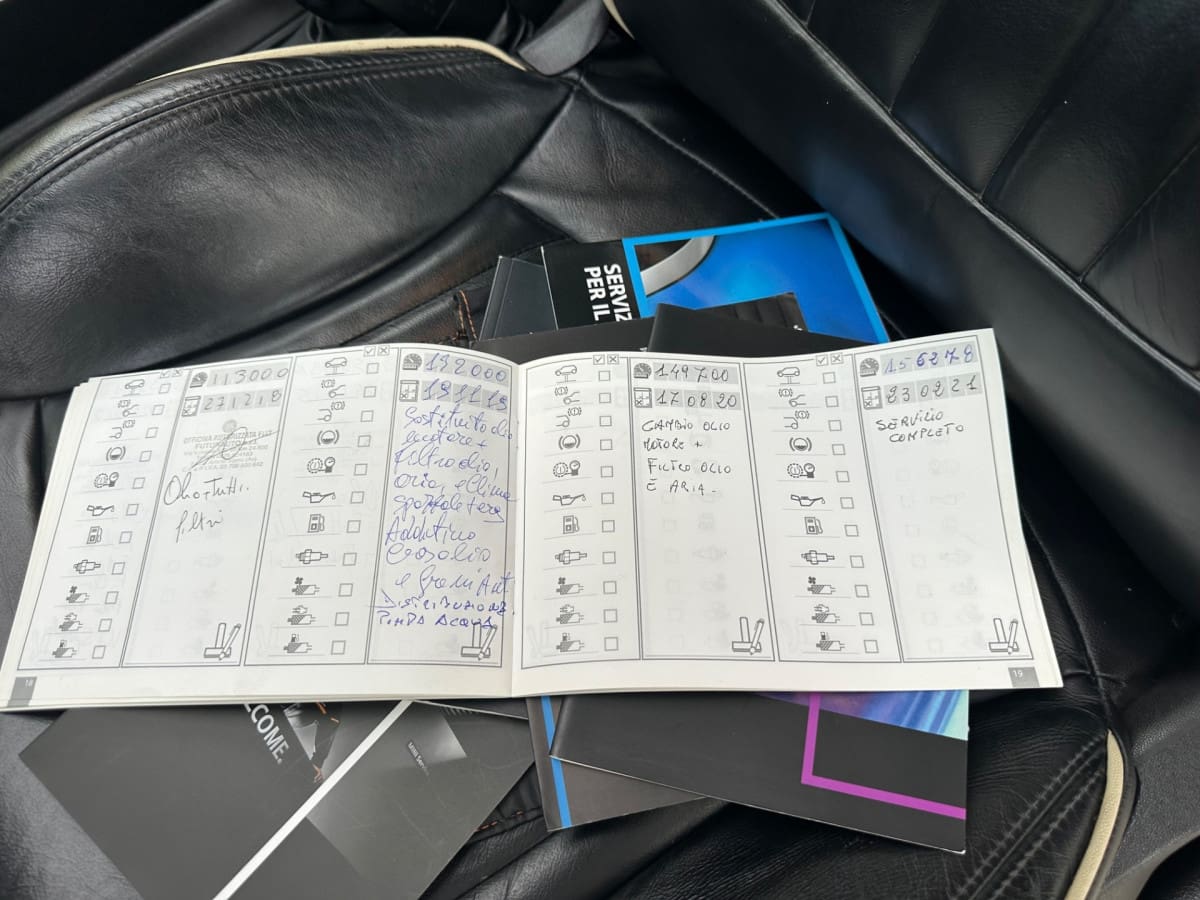 SERVIZ
PER IL
113000
271218
OFFICINA AUTORIZZATA FIAT
Olio + Tutti.
filtri
142000
191119
Sostituito olio
motore +
filtro olio,
aria, e clima
spazzole terg
Additivo
Gasolio
e freni Ant
DISTRIBUZIONE
POMPA ACQUA
149700
170820
CAMBIO OLIO
MOTORE +
FILTRO OLIO
E ARIA.
156278
230221
SERVIZIO
COMPLETO
18
19
LCOME.
MINI Serv